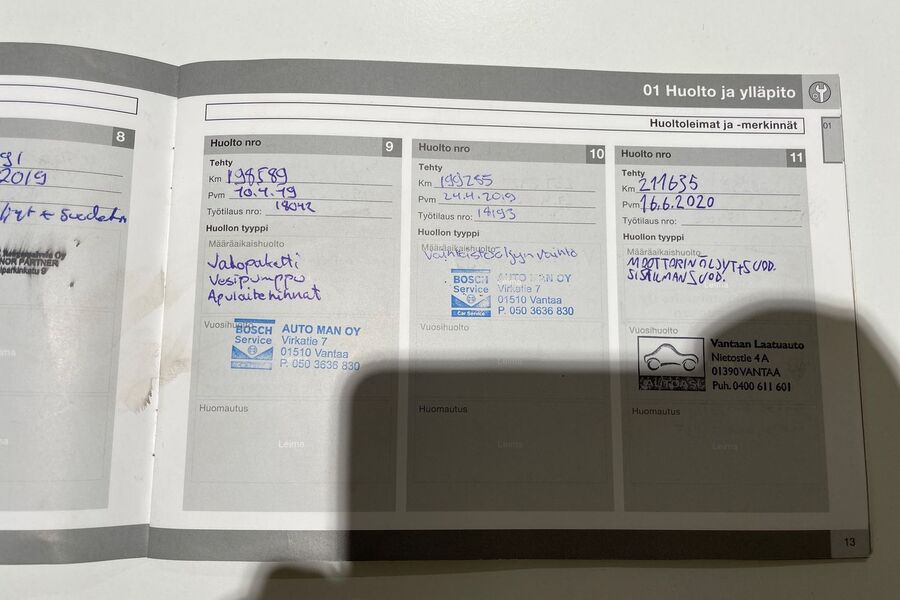 01 Huolto ja ylläpito
Huoltoleimat ja -merkinnät
01
8
91
2019
NOR PARTNER
Huolto nro 9
Tehty
Km 198589
Pvm 10.4.19
Työtilaus nro: 18042
Huollon tyyppi
Määräaikaishuolto
Jakopaketti
Vesipumppu
Apulaitehihnat
Vuosihuolto
BOSCH
Service
AUTO MAN OY
Virkatie 7
01510 Vantaa
P. 050 3636 830
Huomautus
Leima
Huolto nro 10
Tehty
Km 199255
Pvm 24.4.2019
Työtilaus nro: 18193
Huollon tyyppi
Määräaikaishuolto
Vaihteistoöljyn vaihto
BOSCH
Service
Car Service
AUTO MAN OY
Virkatie 7
01510 Vantaa
P. 050 3636 830
Vuosihuolto
Huomautus
Leima
Huolto nro 11
Tehty
Km 211635
Pvm 16.6.2020
Työtilaus nro:
Huollon tyyppi
Määräaikaishuolto
MOOTTORINÖLJYT+SUOD.
SISÄILMANSUOD.
Vuosihuolto
AUTOASI
Vantaan Laatuauto
Nietostie 4 A
01390 VANTAA
Puh. 0400 611 601
Huomautus
Leima
13